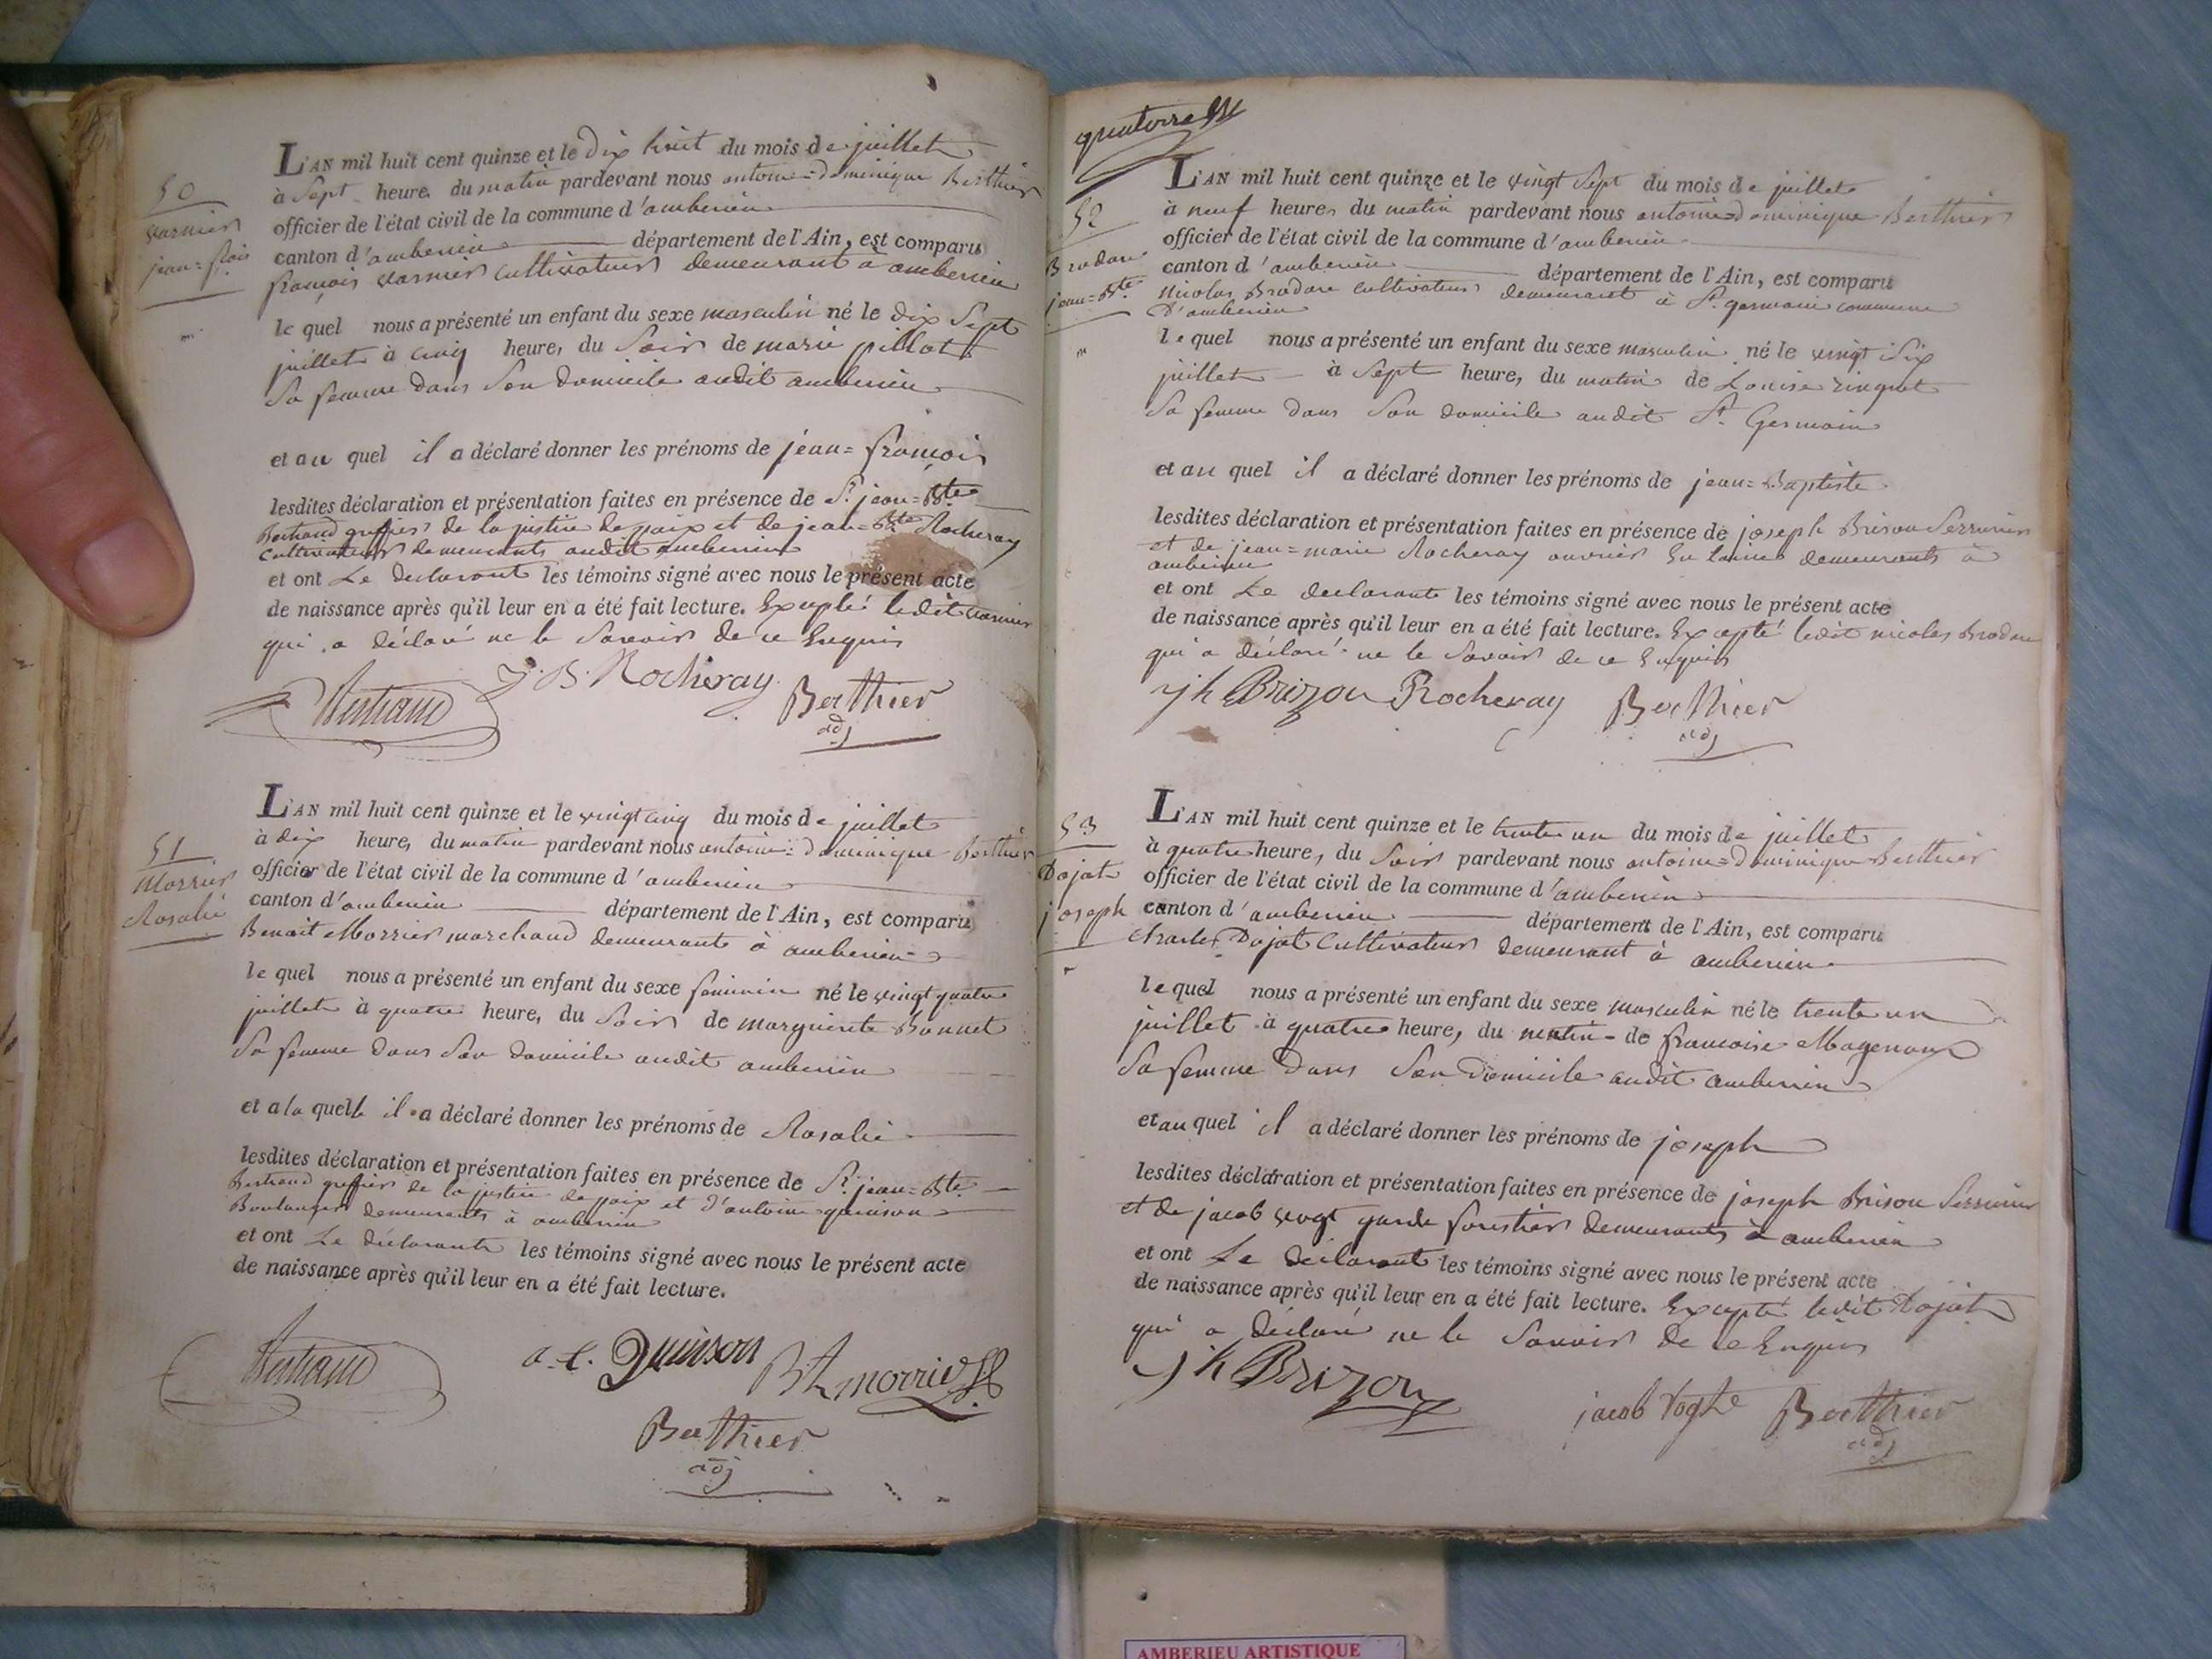 50
Varnier
jean=fçois
L'AN mil huit cent quinze et le dix huit du mois de juillet
à Sept heure, du matin pardevant nous antoine=dominique Berthier
officier de l'état civil de la commune d'amberieu
canton d'amberieu département de l'Ain, est comparu
françois Varnier cultivateur demeurant à amberieu
le quel nous a présenté un enfant du sexe masculin né le dix Sept
juillet à cinq heure, du Soir de marie pillot
Sa femme dans Son domicile audit amberieu
et au quel il a déclaré donner les prénoms de jean=françois
lesdites déclaration et présentation faites en présence de Sr. jean=Bte
Bertrand greffier de la justice de paix et de jean=Bte Rocheray
cultivateur demeurants audit amberieu
et ont Le declarant les témoins signé avec nous le présent acte
de naissance après qu'il leur en a été fait lecture. Excepté ledit Varnier
qui a déclaré ne le Savoir de ce Enquis
Bertrand J. B. Rocheray Berthier
adj
51
Morrier
Rosalie
L'AN mil huit cent quinze et le vingt cinq du mois de juillet
à dix heure, du matin pardevant nous antoine=dominique Berthier
officier de l'état civil de la commune d'amberieu
canton d'amberieu département de l'Ain, est comparu
Benoit Morrier marchand demeurant à amberieu
le quel nous a présenté un enfant du sexe feminin né le vingt quatre
juillet à quatre heure, du Soir de marguerite Bonnet
Sa femme dans Son domicile audit amberieu
et a la quelle il a déclaré donner les prénoms de Rosalie
lesdites déclaration et présentation faites en présence de Sr. jean=Bte
Bertrand greffier de la justice de paix et d'antoine quinson
Boulanger demeurants à amberieu
et ont Le déclarant les témoins signé avec nous le présent acte
de naissance après qu'il leur en a été fait lecture.
Bertrand a.t. Quinson Bt morrier
Berthier
adj
quatorze
52
Brodare
jean=Bte
L'AN mil huit cent quinze et le vingt Sept du mois de juillet
à neuf heure, du matin pardevant nous antoine=dominique Berthier
officier de l'état civil de la commune d'amberieu
canton d'amberieu département de l'Ain, est comparu
Nicolas Brodare cultivateur demeurant à St. germain commune
D'amberieu
le quel nous a présenté un enfant du sexe masculin né le vingt Six
juillet à Sept heure, du matin de Louise ringuet
Sa femme dans Son domicile audit St. Germain
et au quel il a déclaré donner les prénoms de jean=Baptiste
lesdites déclaration et présentation faites en présence de joseph Brison Serrurier
et de jean=marie Rocheray ouvrier En laine demeurants à
amberieu
et ont Le declarant les témoins signé avec nous le présent acte
de naissance après qu'il leur en a été fait lecture. Excepté ledit nicolas Brodare
qui a déclaré ne le Savoir de ce Enquis
jh Brizon Rocheray Berthier
adj
53
Dojat
joseph
L'AN mil huit cent quinze et le trente un du mois de juillet
à quatre heure, du Soir pardevant nous antoine=dominique Berthier
officier de l'état civil de la commune d'amberieu
canton d'amberieu département de l'Ain, est comparu
charles Dojat cultivateur demeurant à amberieu
le quel nous a présenté un enfant du sexe masculin né le trente un
juillet à quatre heure, du matin de francoise Magenoux
Sa femme dans Son Domicile audit amberieu
et au quel il a déclaré donner les prénoms de joseph
lesdites déclaration et présentation faites en présence de joseph Brison Serrurier
et de jacob vogt garde forestier demeurants à amberieu
et ont Le declarant les témoins signé avec nous le présent acte
de naissance après qu'il leur en a été fait lecture. Excepté ledit Dojat
qui a déclaré ne le Savoir de ce Enquis
jh Brizon
jacob Voght Berthier
adj
AMBERIEU ARTISTIQUE